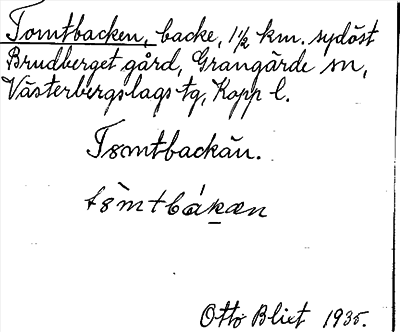 Tomtbacken, backe, 1½ km. sydöst
Brudberget gård, Grangärde sn,
Västerbergslags tg, Kopp l.
Tomtbackän.
Otto Blixt 1935.